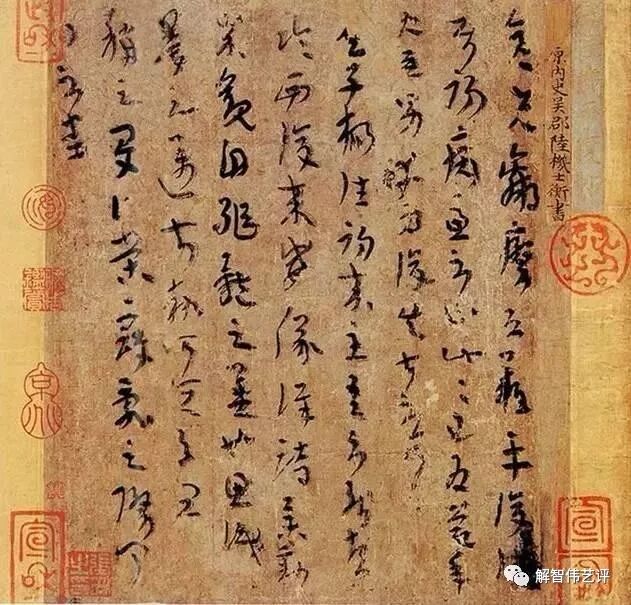 原内史吳郡陸機士衡書
彦先羸瘵恐難平復往
屬初病慮不止此此已為慶承
使唯男幸為復失前憂耳
吳子楊往初來主吾不能盡
臨西復來威儀詳跱舉動
成觀自軀體之美也思識
量之邁前執所恒有宜
稱之夏伯榮寇亂之際聞
問不悉
宣和
解智伟艺评